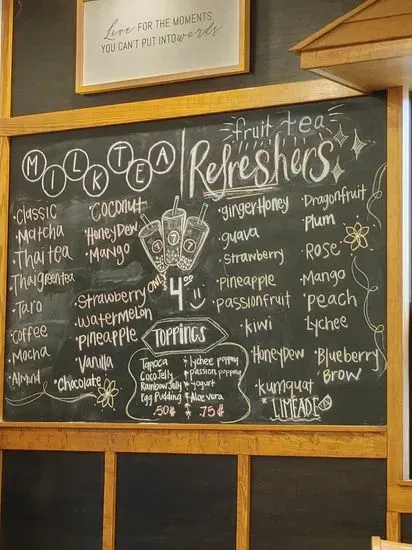 Live FOR THE MOMENTS
YOU CAN'T PUT INTO words
MILK TEA
·Classic
·Matcha
·Thai tea
·Thai green tea
·Taro
·Coffee
·Mocha
·Almond
·Coconut
·HoneyDew
·Mango
·Strawberry
·Watermelon
·Pineapple
·Vanilla
·Chocolate
only
4
TOPPINGS
Tapioca
Coco Jelly
Rainbow Jelly
Egg Pudding
.50¢
* lychee popping
* passion popping
* yogurt
* Aloe vera
.75¢
fruit tea
Refreshers
·ginger Honey
·guava
·Strawberry
·Pineapple
·Passionfruit
·kiwi
·HoneyDew
·kumquat
* LIMEADE
·Dragonfruit
·Plum
·Rose
·Mango
·peach
·Lychee
·Blueberry
·Brow